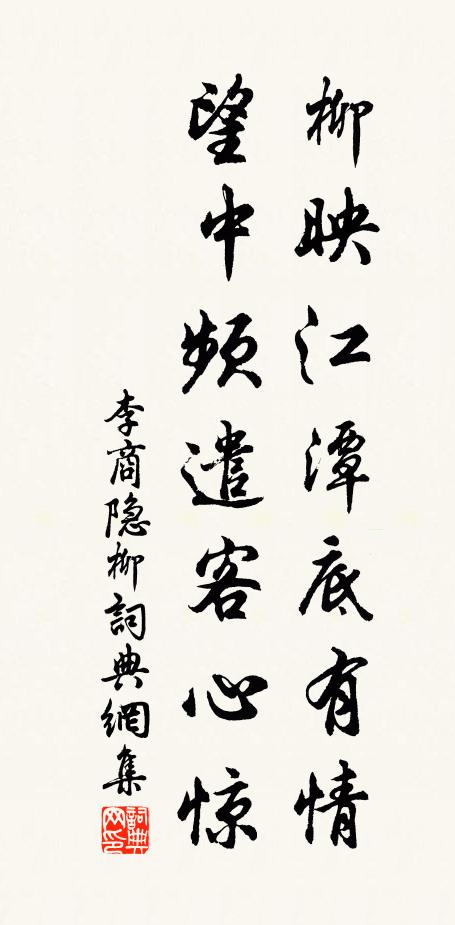 柳映江潭底有情
望中频遣客心惊
李商隐柳詞典網集
詞典网印